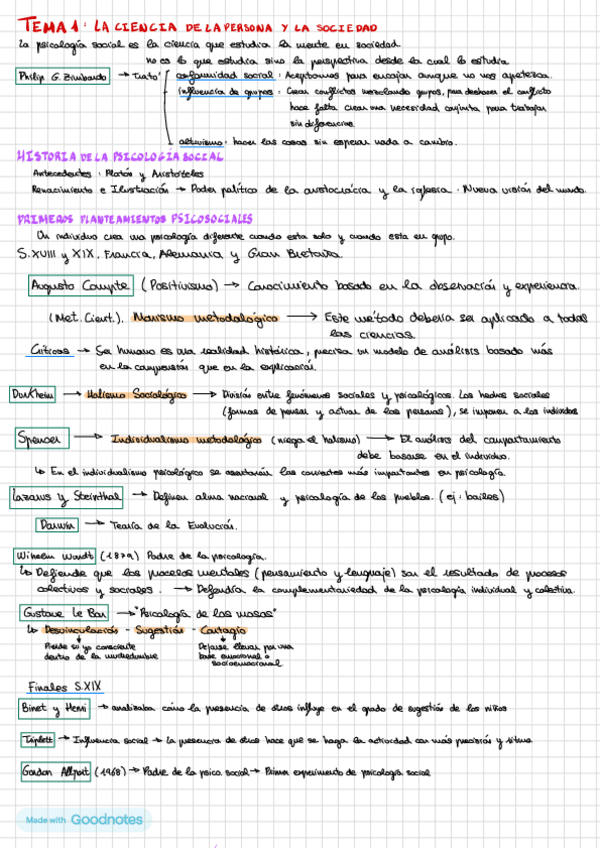 TEMA 1: LA CIENCIA DE LA PERSONA Y LA SOCIEDAD
La psicología social es la ciencia que estudia la mente en sociedad.
no es lo que estudia sino la perspectiva desde la cual lo estudia
Philip G. Zimbardo → Trató
conformidad social: Aceptamos para encajar aunque no nos apetezca.
influencia de grupos: Crear conflictos mezclando grupos, para deshacer el conflicto
hace falta crear una necesidad conjunta para trabajar
sin diferencias
altruismo: hacer las cosas sin esperar nada a cambio.
HISTORIA DE LA PSICOLOGÍA SOCIAL
Antecedentes: Platón y Aristóteles
Renacimiento e Ilustración → Poder político de la aristocracia y la iglesia. Nueva visión del mundo.
PRIMEROS PLANTEAMIENTOS PSICOSOCIALES
Un individuo crea una psicología diferente cuando esta solo y cuando esta en grupo.
S. XVIII y XIX, Francia, Alemania y Gran Bretaña.
Augusto Compte (Positivismo) → Conocimiento basado en la observación y experiencia.
(Met. Cient.). Monismo metodológico → Este método debería ser aplicado a todas
las ciencias.
Críticas → Ser humano es una realidad histórica, precisa un modelo de análisis basado más
en la comprensión que en la explicación.
Durkheim → Holismo Sociológico → División entre fenómenos sociales y psicológicos. Los hechos sociales
(formas de pensar y actuar de las personas), se imponen a los individuos
Spencer → Individualismo metodológico (niega el holismo) → El análisis del comportamiento
debe basarse en el individuo.
↳ En el individualismo psicológico se asentarán las corrientes más importantes en psicología.
Lazarus y Steinthal → Definen alma nacional y psicología de los pueblos. (ej: bailes)
Darwin → Teoría de la Evolución.
Wilhelm Wundt (1879) Padre de la psicología.
↳ Defiende que los procesos mentales (pensamiento y lenguaje) son el resultado de procesos
colectivos y sociales. → Defendía la complementariedad de la psicología individual y colectiva.
Gustave Le Bon → "Psicología de las masas"
↳ Desvinculación - Sugestión - Contagio
Pierde su yo consciente
dentro de la muchedumbre
Dejarse llevar por una
base emocional o
socioemocional
Finales S.XIX
Binet y Henri → analizaba cómo la presencia de otros influye en el grado de sugestión de los niños
Triplett → Influencia social → La presencia de otros hace que se haga la actividad con más precisión y ritmo
Gordon Allport (1968) → Padre de la psico. social → Primer experimento de psicología social
Made with Goodnotes